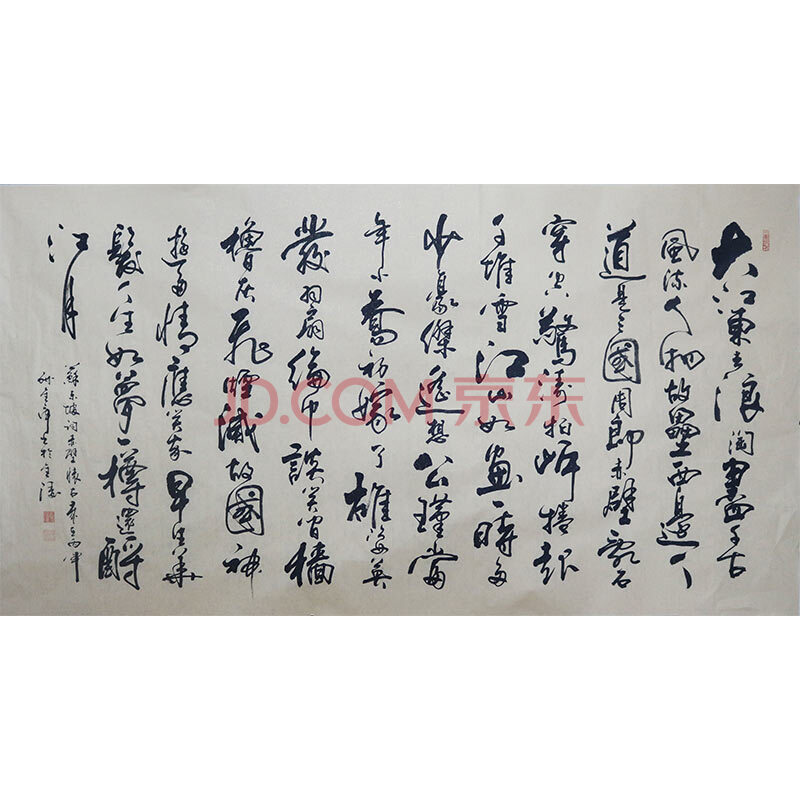 大江東去浪淘盡千古
風流人物故壘西邊人
道是三國周郎赤壁亂石
穿空驚濤拍岸捲起
千堆雪江山如畫一時多
少豪傑遙想公瑾當
年小喬初嫁了雄姿英
發羽扇綸巾談笑間檣
櫓灰飛煙滅故國神
遊多情應笑我早生華
髮人生如夢一樽還酹
江月
蘇東坡詞赤壁懷古歲在丙申
書於金陵
JD.COM 京东